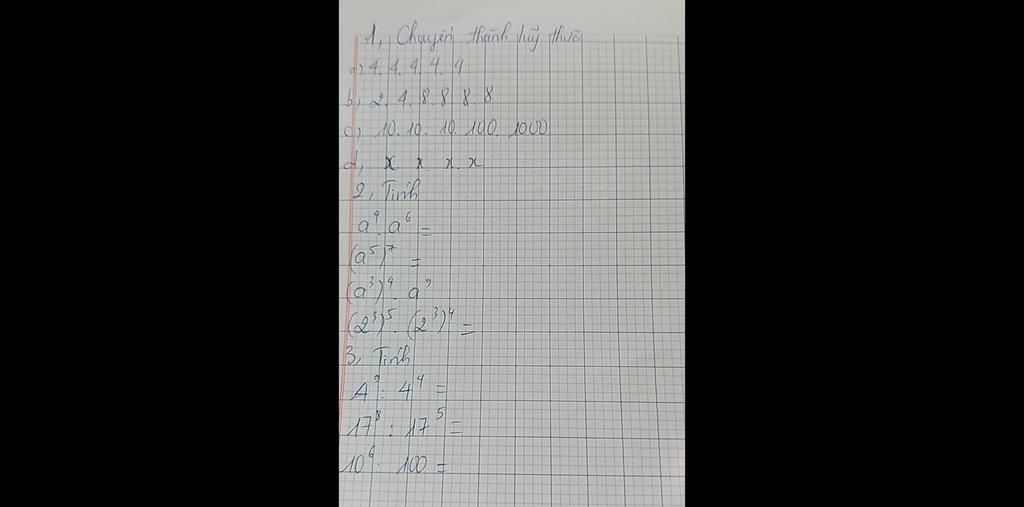 1, Chuyển thành luỹ thừa
a) 4. 4. 4. 4. 4
b, 2. 4. 8. 8. 8. 8
c) 10. 10. 10. 100. 1000
d, x. x. x. x
2, Tính
a⁴. a⁶ =
(a⁵)⁷ =
(a³)⁴. a⁹
(2³)⁵. (2³)⁴ =
3, Tính
4⁹: 4⁴ =
17⁸ : 17⁵ =
10⁶: 100 =